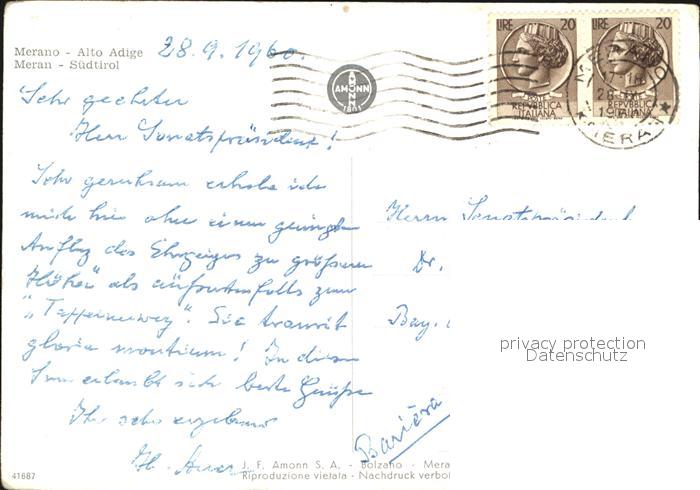 Merano - Alto Adige
Meran - Südtirol
28.9.1960.
LIRE 20
LIRE 20
REPVBBLICA
ITALIANA
REPVBBLICA
ITALIANA
AMONN
MERANO
MERAN
Sehr geehrter
Herr Senatspräsident!
Sehr geruhsam erhole ich
mich hier ohne einen geringsten
Anflug des Ehrgeizes zu größeren
"Höhen" als äußerstenfalls zum
"Tappeinerweg". Sic transit
gloria montium! In diesem
Sinn erlaubt sich beste Grüße
Ihr sehr ergebener
Herrn Senatspräsident
Dr.
Bay.
Baviera
privacy protection
Datenschutz
41687
J. F. Amonn S. A. - Bolzano - Mera
Riproduzione vietata - Nachdruck verboi